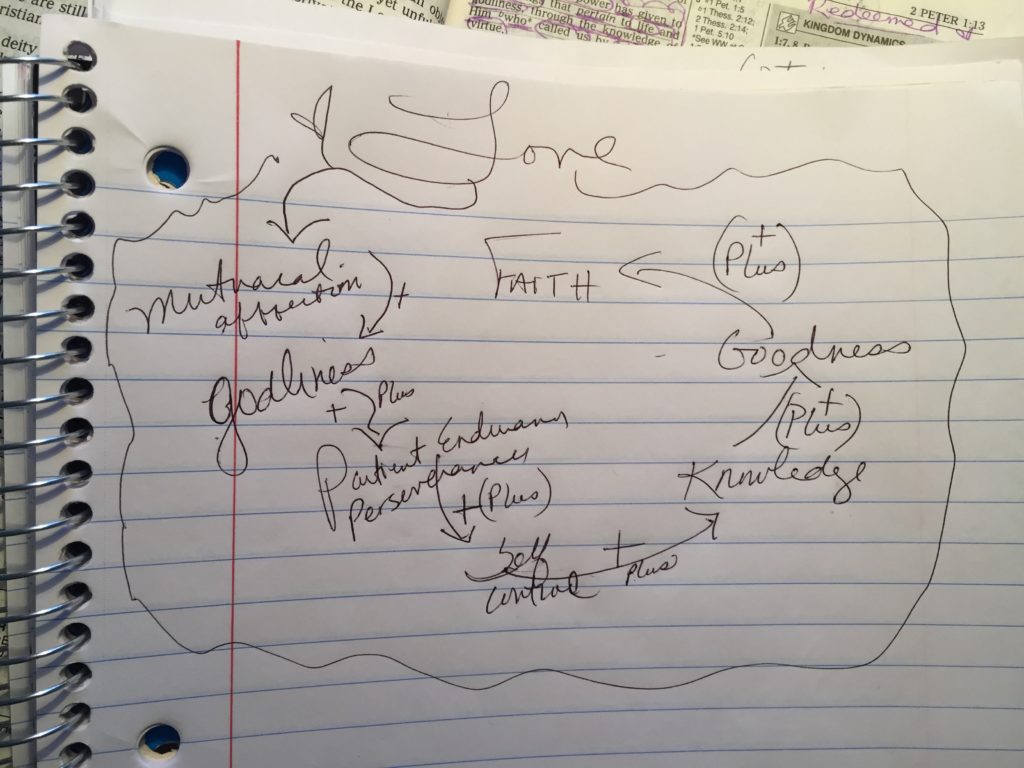 are still
deity
yet unfu
power has given to
that pertain to life and
through the knowledge
him who called us by
(virtue,
1 Pet. 1:5
1 Thess. 2:12;
2 Thess. 2:14;
1 Pet. 5:10
Redeemed
2 PETER 1:13
KINGDOM DYNAMICS
Love
Mutuacal
affection
+
FAITH
(Plus +)
Goodness
godliness
+ Plus
(Plus +)
Patient Endurance
Perseverance
Knowledge
+ (Plus)
Self
control
+
Plus